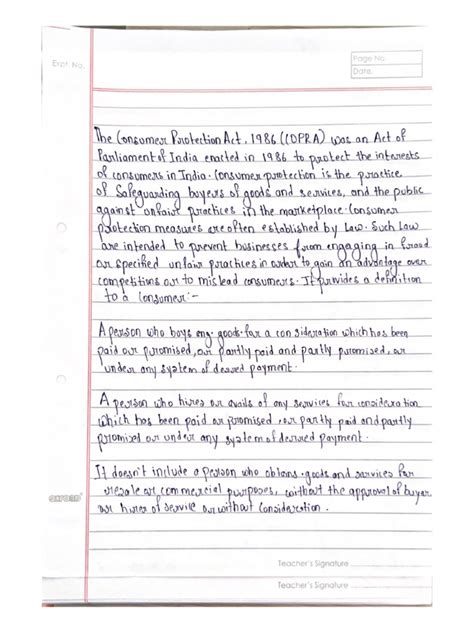 Expt. No.
Page No.
Date.
The Consumer Protection Act, 1986 (COPRA) was an Act of
Parliament of India enacted in 1986 to protect the interests
of consumers in India. Consumer protection is the practice
of safeguarding buyers of goods and services, and the public
against unfair practices in the marketplace. Consumer
protection measures are often established by Law. Such Law
are intended to prevent businesses from engaging in fraud
or specified unfair practices in order to gain an advantage over
competitions or to mislead consumers. It provides a definition
to a Consumer:-
A person who buys eng. goods for a consideration which has been
paid or promised, or partly paid and partly promised, or
under any system of defered payment.
A person who hires or avails of any services for consideration
which has been paid or promised, or partly paid and partly
promised or under any system of defered payment.
It doesn't include a person who obtains goods and services for
resale or commercial purposes, without the approval of buyer
or hires of service or without consideration.
oxford
Teacher's Signature
Teacher's Signature